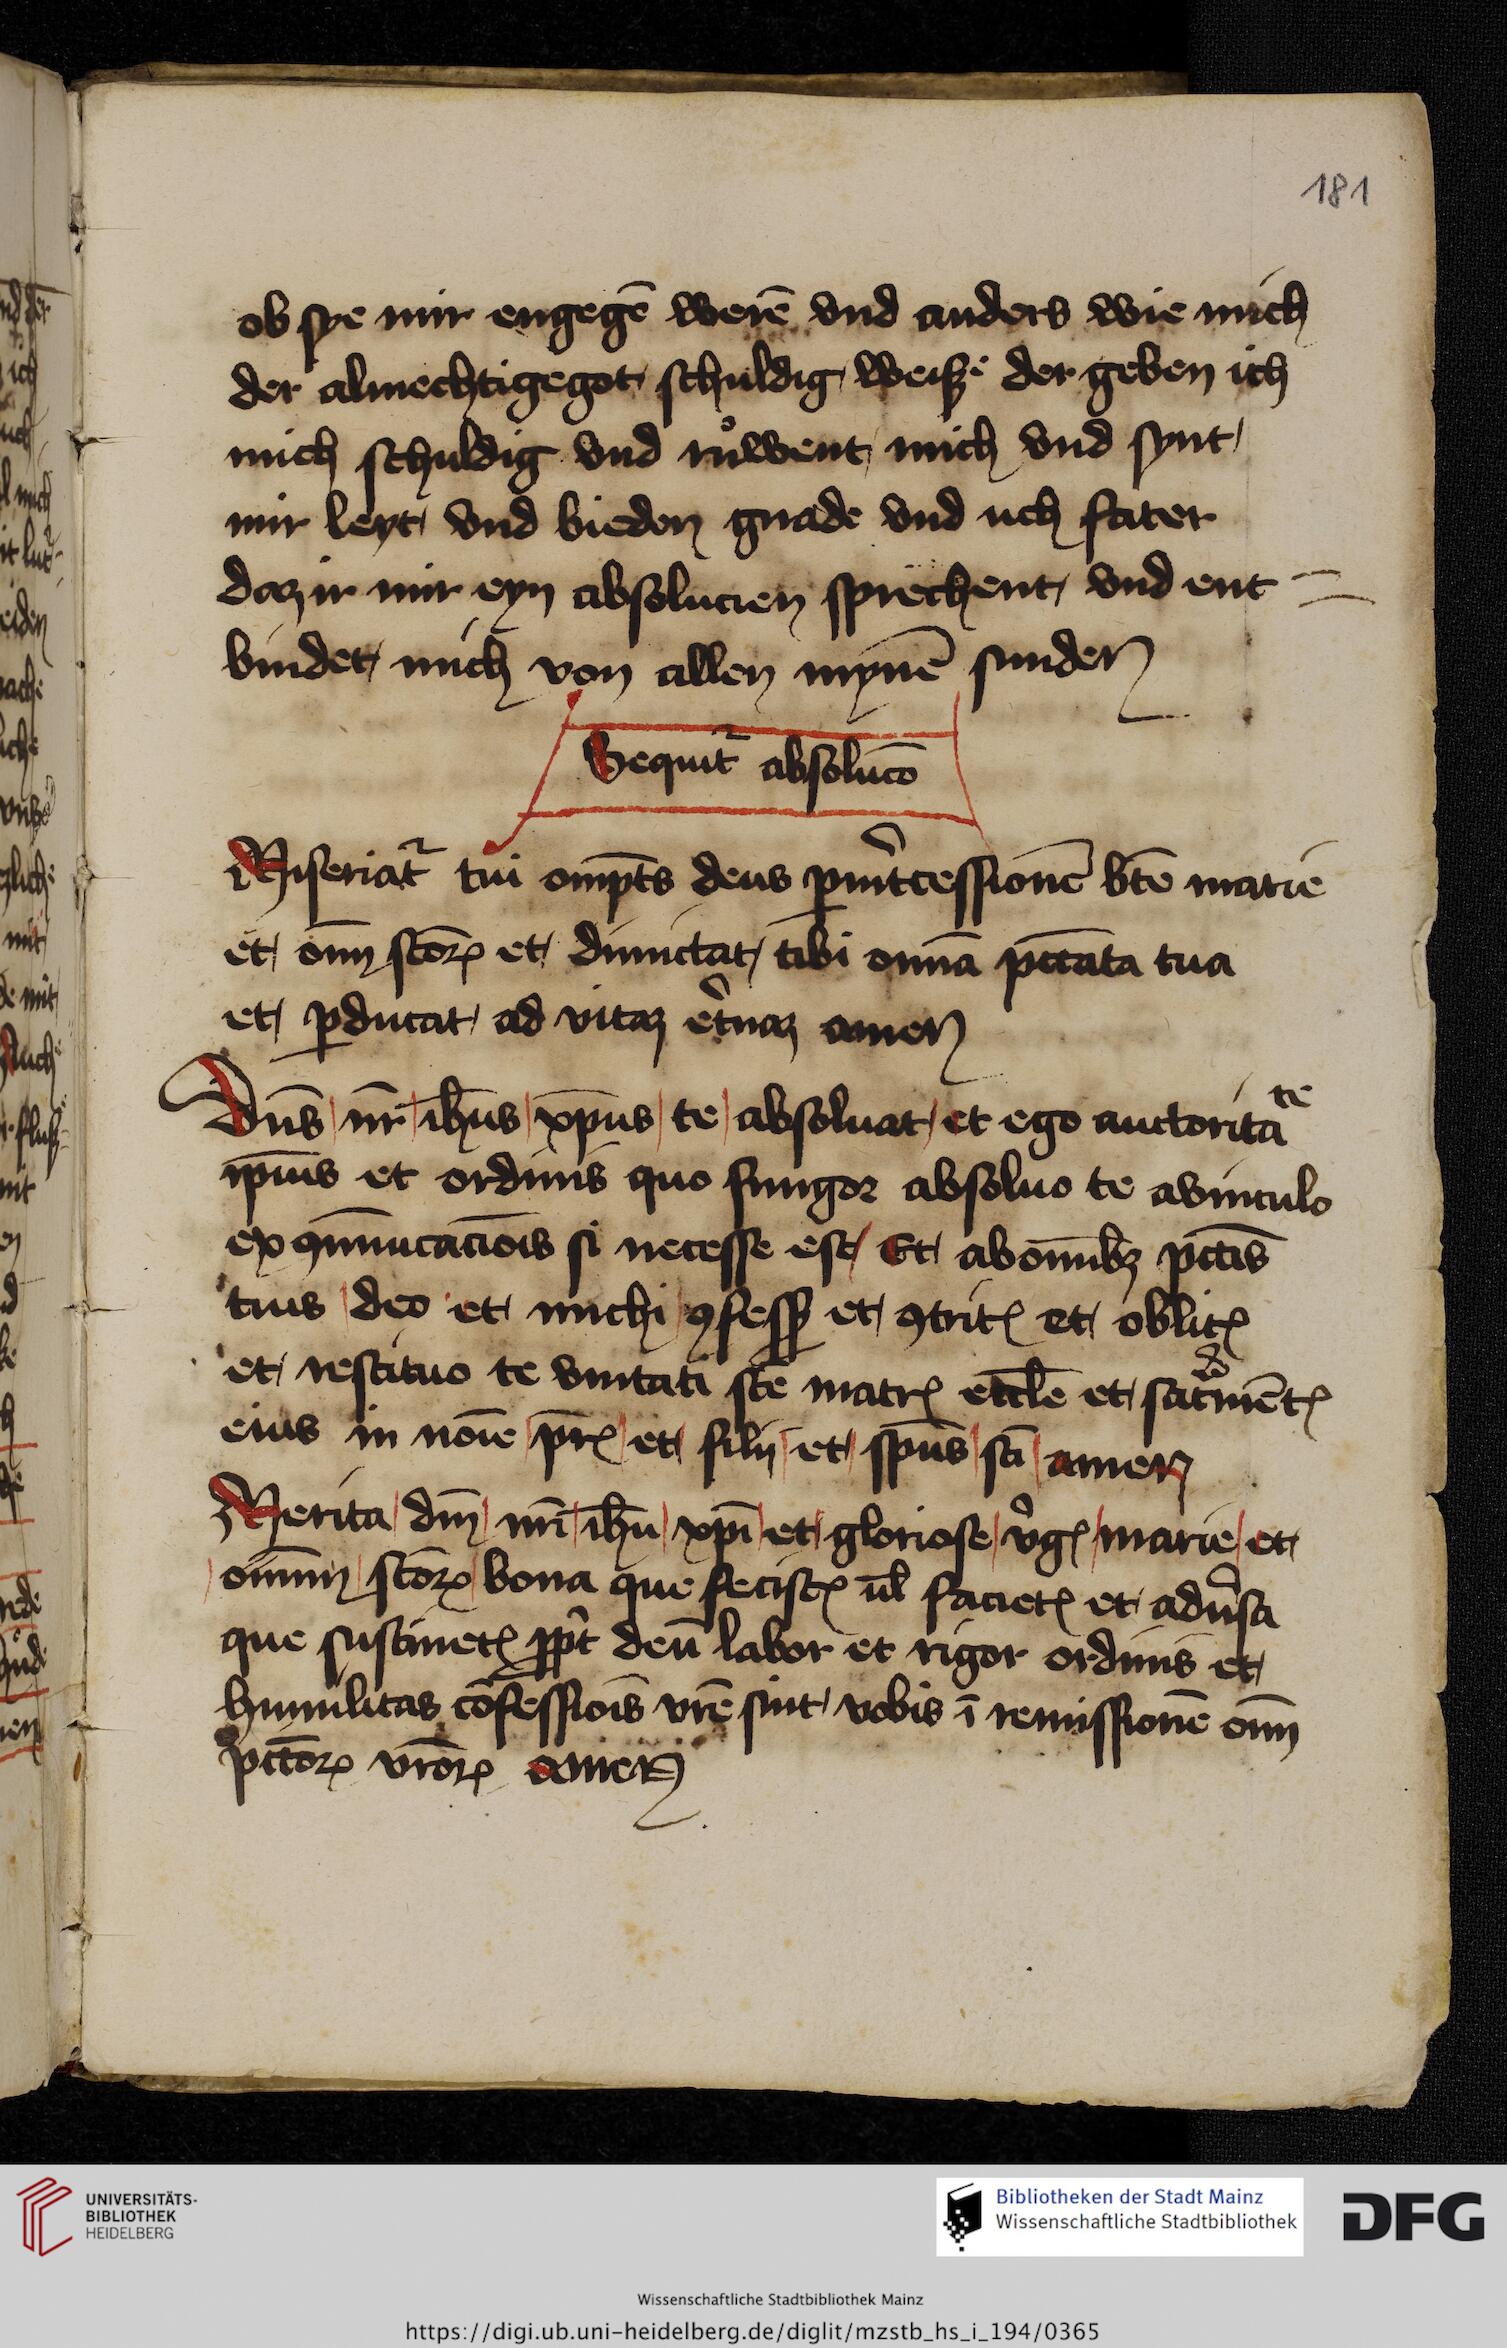 181
ob sye mir engegē werē vnd anders wie mich
der almechtigegot schuldig weiß der geben ich
mich schuldig vnd růwent mich vnd synt
mir leyt vnd bieden gnade vnd uch fater
daz ir mir eyn absolucien sprechent vnd ent
bindet mich von allen mynē sunden
Sequit᷑ absolucō
Miseriat᷑ tui omp̄ts deus ꝑint᷑cessionē btē marie
et om̄ scōꝝ et dimictat tibi om̄a pcc̄ata tua
et ꝑducat ad vitaz et᷑naz amen
Dn̄s nr̄ ih̄us xp̄us te absoluat et ego auctorita
te
ip̄ius et ordinis quo fungor absoluo te avinculo
exꝯmūicaciōis si necesse est Et abomībꝫ pctīs
tuis deo et michi ꝯfess et ꝯtritꝭ et oblitꝭ
et restituo te vnitati stē matrꝭ eccl̄e et sacr̄mētꝭ
eius in noīe pr̄ꝭ et filii et sp̄us sc̄i amen
Merita dn̄i nr̄i ih̄u xp̄i et gloriose v᷑gꝭ marie et
om̄iu scōꝝ bona que fecistꝭ ul̄ facietꝭ et adu᷑sa
que sustinetꝭ ꝓpt᷑ deū labor et rigor ordinis et
humilitas cōfessiōis vr̄e sint vobis ī remissionē om̄
pcc̄oꝝ vr̄oꝝ amen
UNIVERSITÄTS-
BIBLIOTHEK
HEIDELBERG
Bibliotheken der Stadt Mainz
Wissenschaftliche Stadtbibliothek
DFG
Wissenschaftliche Stadtbibliothek Mainz
https://digi.ub.uni-heidelberg.de/diglit/mzstb_hs_i_194/0365